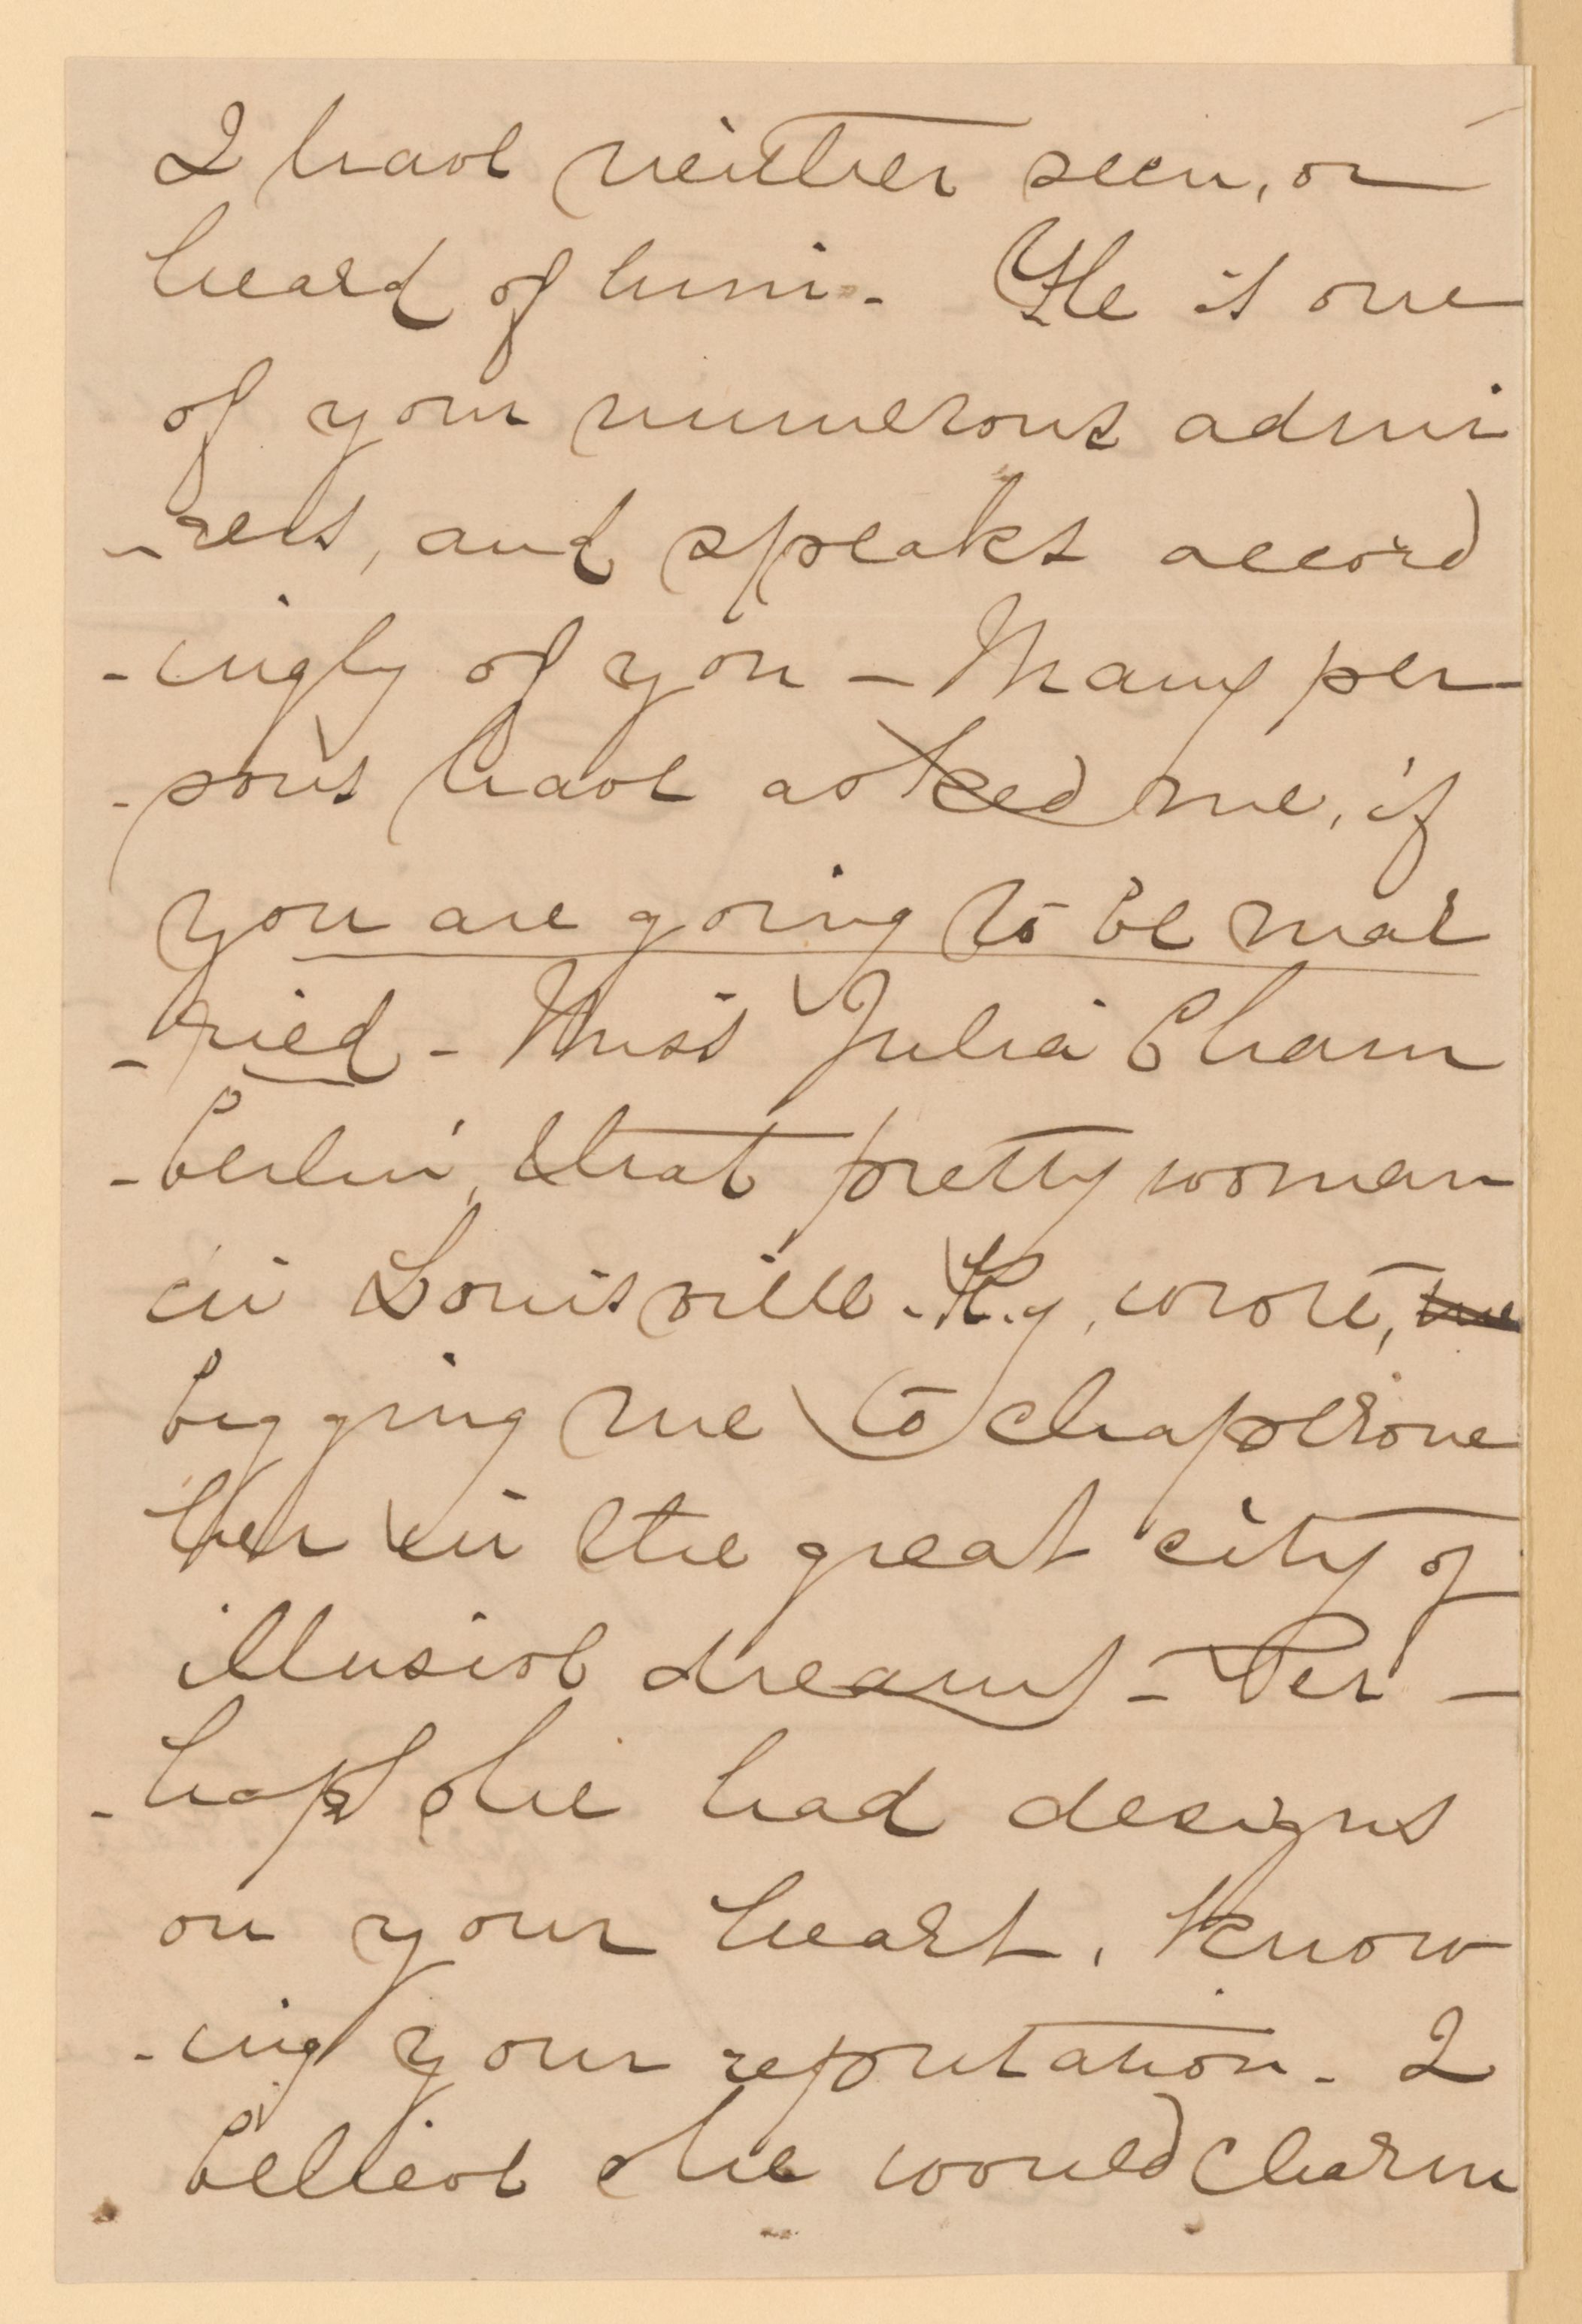 I have neither seen, or
heard of him. He is one
of your numerous admi
-rers, and speaks accord
-ingly of you - Many per
-sons have asked me, if
you are going to be mar
-ried - Miss Julia Cham
-berlin, that pretty woman
in Louisville. Ky, wrote, me
begging me to chaperone
her in the great city of
illusive dreams - Per -
-haps she had designs
on your heart, know
-ing your reputation. I
believe she would charm